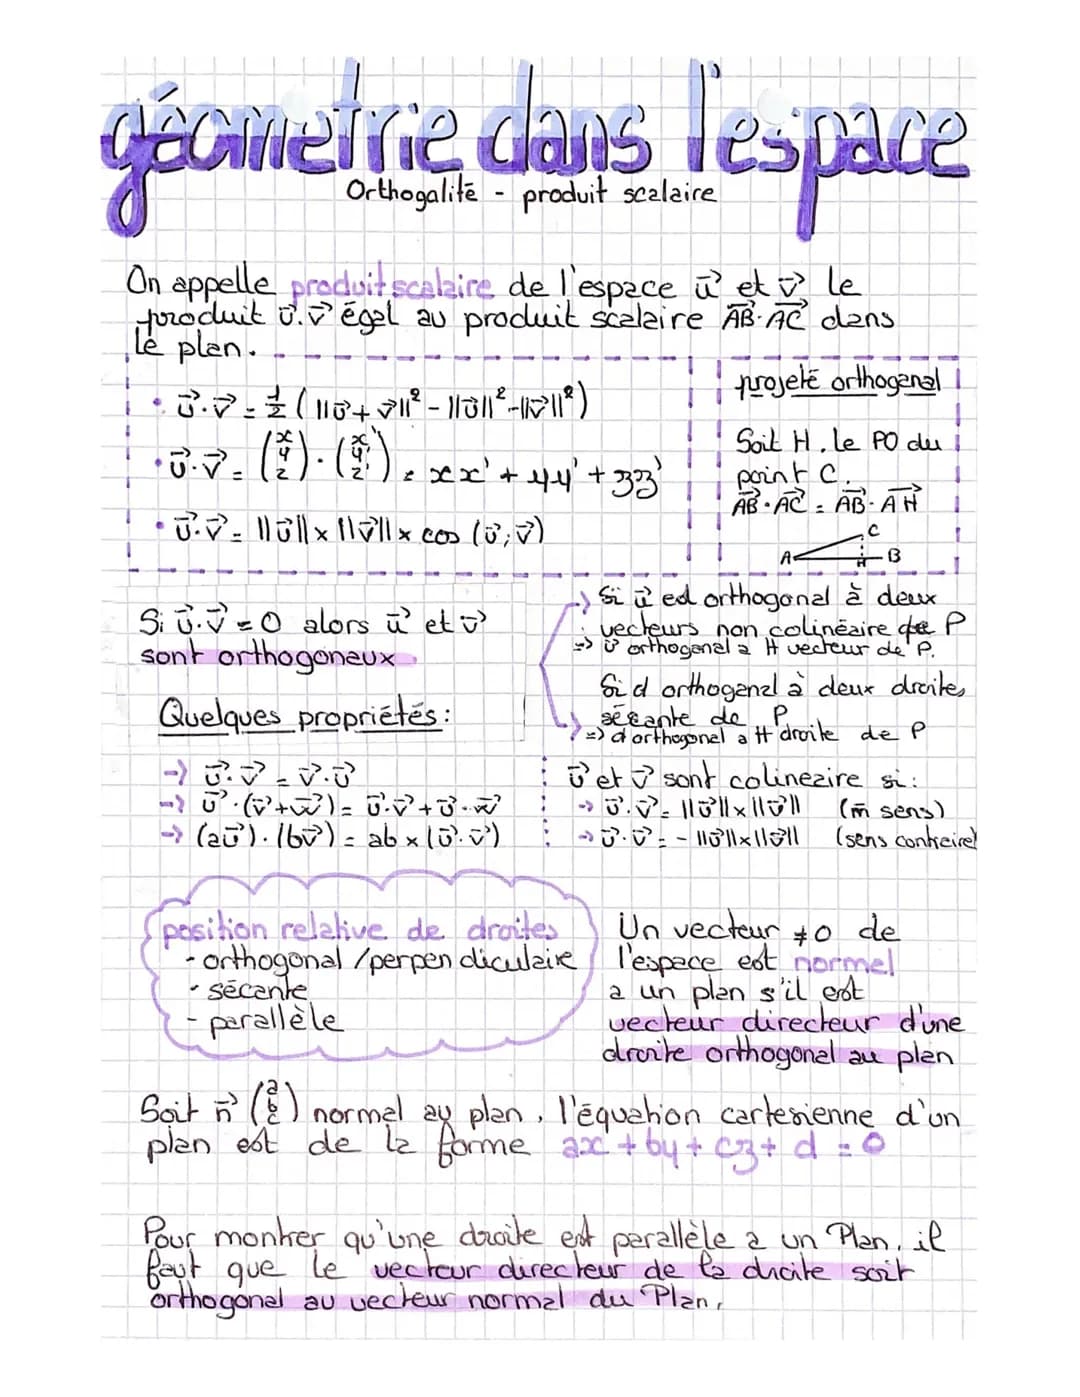 géométrie dans l'espace
Orthogalité - produit scalaire
On appelle produit scalaire de l'espace u⃗ et v⃗ le
produit u⃗.v⃗ égal au produit scalaire AB⃗·AC⃗ dans
le plan.
• u⃗.v⃗ = 1/2 (||u⃗+v⃗||² - ||u⃗||² - ||v⃗||²)
• u⃗.v⃗ = (x y z) · (x' y' z') = xx' + yy' + zz'
• u⃗.v⃗ = ||u⃗|| x ||v⃗|| x cos (u⃗;v⃗)
projeté orthogonal
Soit H, le PO du
point C.
AB⃗·AC⃗ = AB⃗·AH⃗
C
A
H
B
Si u⃗.v⃗ = 0 alors u⃗ et v⃗
sont orthogonaux
-> Si u⃗ est orthogonal à deux
vecteurs non colinéaire de P
=> u⃗ orthogonal a tt vecteur de P.
Si d orthogonal à deux droites
sécante de P
-> => d orthogonal a tt droite de P
Quelques propriétés :
-> u⃗.v⃗ = v⃗.u⃗
-> u⃗.(v⃗+w⃗) = u⃗.v⃗ + u⃗.w⃗
-> (au⃗).(bv⃗) = ab x (u⃗.v⃗)
u⃗ et v⃗ sont colineaire si :
-> u⃗.v⃗ = ||u⃗|| x ||v⃗|| (m̄ sens)
-> u⃗.v⃗ = - ||u⃗|| x ||v⃗|| (sens contraire)
position relative de droites
- orthogonal / perpendiculaire
- sécante
- parallèle
Un vecteur ≠0 de
l'espace est normal
a un plan s'il est
vecteur directeur d'une
droite orthogonal au plan
Soit n⃗ (a b c) normal au plan, l'équation cartesienne d'un
plan est de la forme ax + by + cz + d = 0
Pour montrer qu'une droite est parallèle a un Plan, il
faut que le vecteur directeur de la droite soit
orthogonal au vecteur normal du Plan.